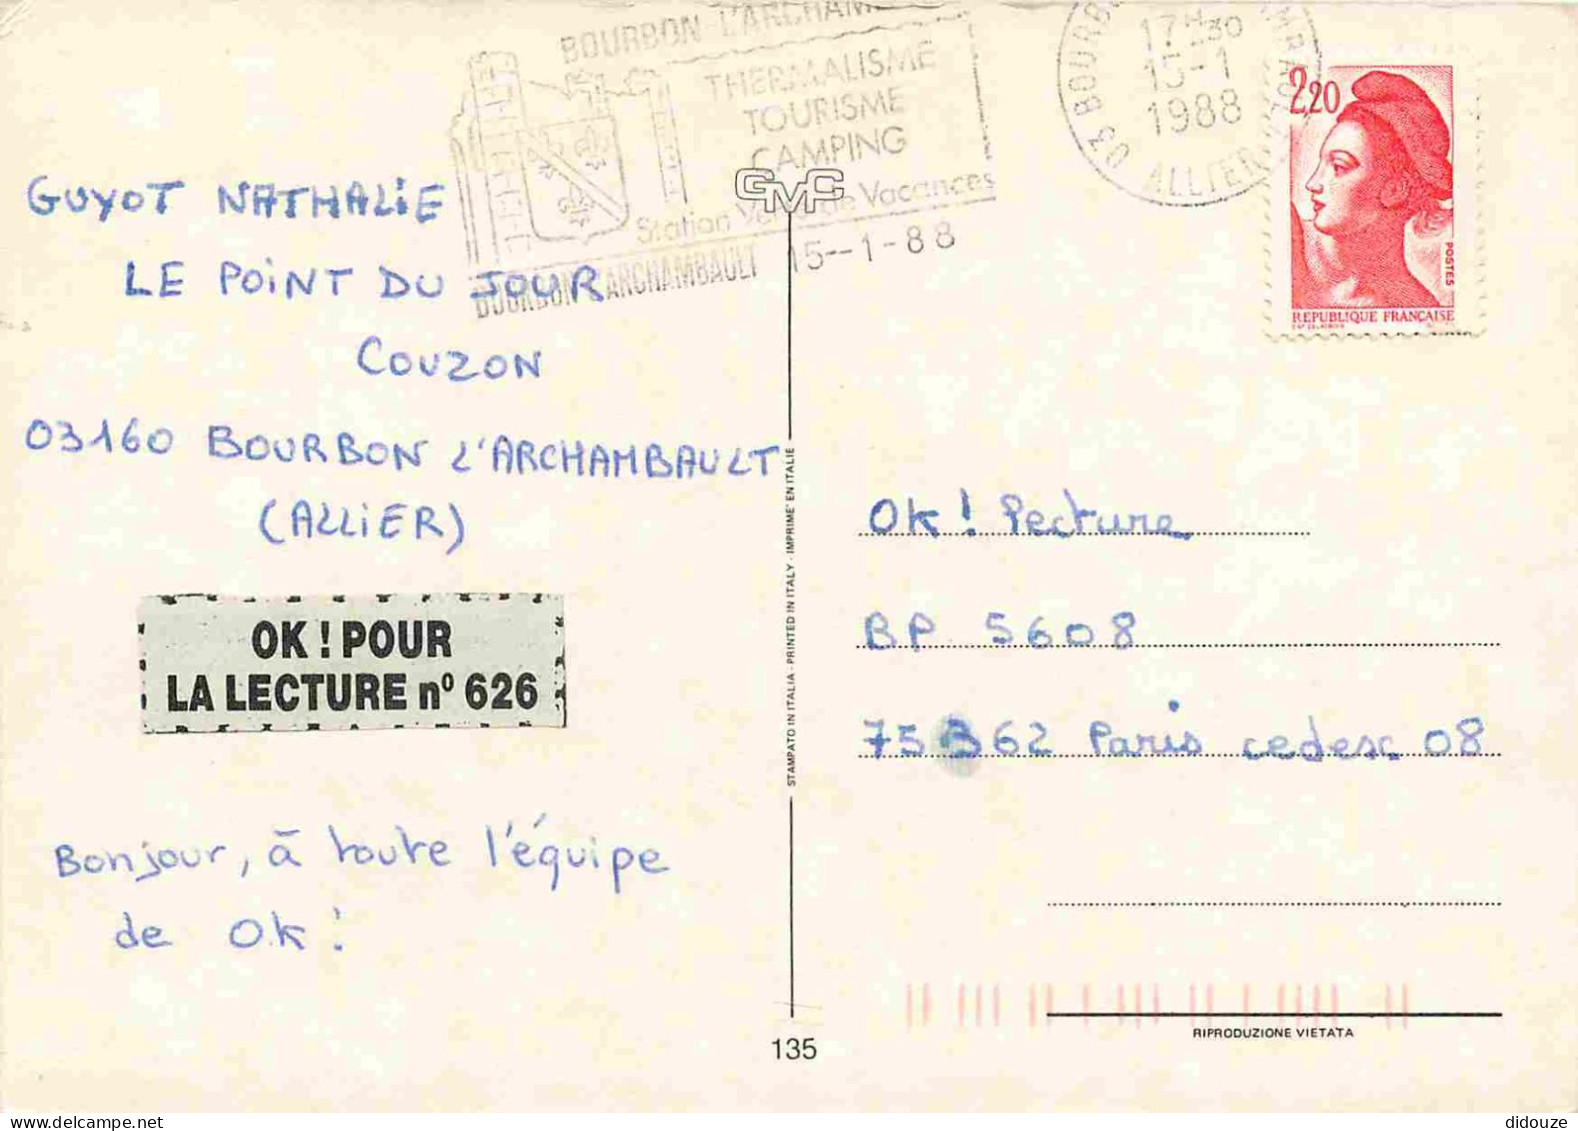 BOURBON L'ARCHAM
THERMALISME
TOURISME
CAMPING
Station Vacances
BOURBON L'ARCHAMBAULT 15--1-88
17H30
15-1
1988
03 BOURB
ALLIER
2,20
POSTES
REPUBLIQUE FRANÇAISE
GMC
GUYOT NATHALiE
LE POiNT DU JOUR
COUZON
03160 BOURBON L'ARCHAMBAULT
(ALLiER)
OK ! POUR
LA LECTURE nº 626
Bonjour, à toute l'équipe
de Ok !
STAMPATO IN ITALIA - PRINTED IN ITALY - IMPRIME' EN ITALIE
Ok ! Pecture
BP 5608
75362 Paris cedesc 08
135
RIPRODUZIONE VIETATA
didouze